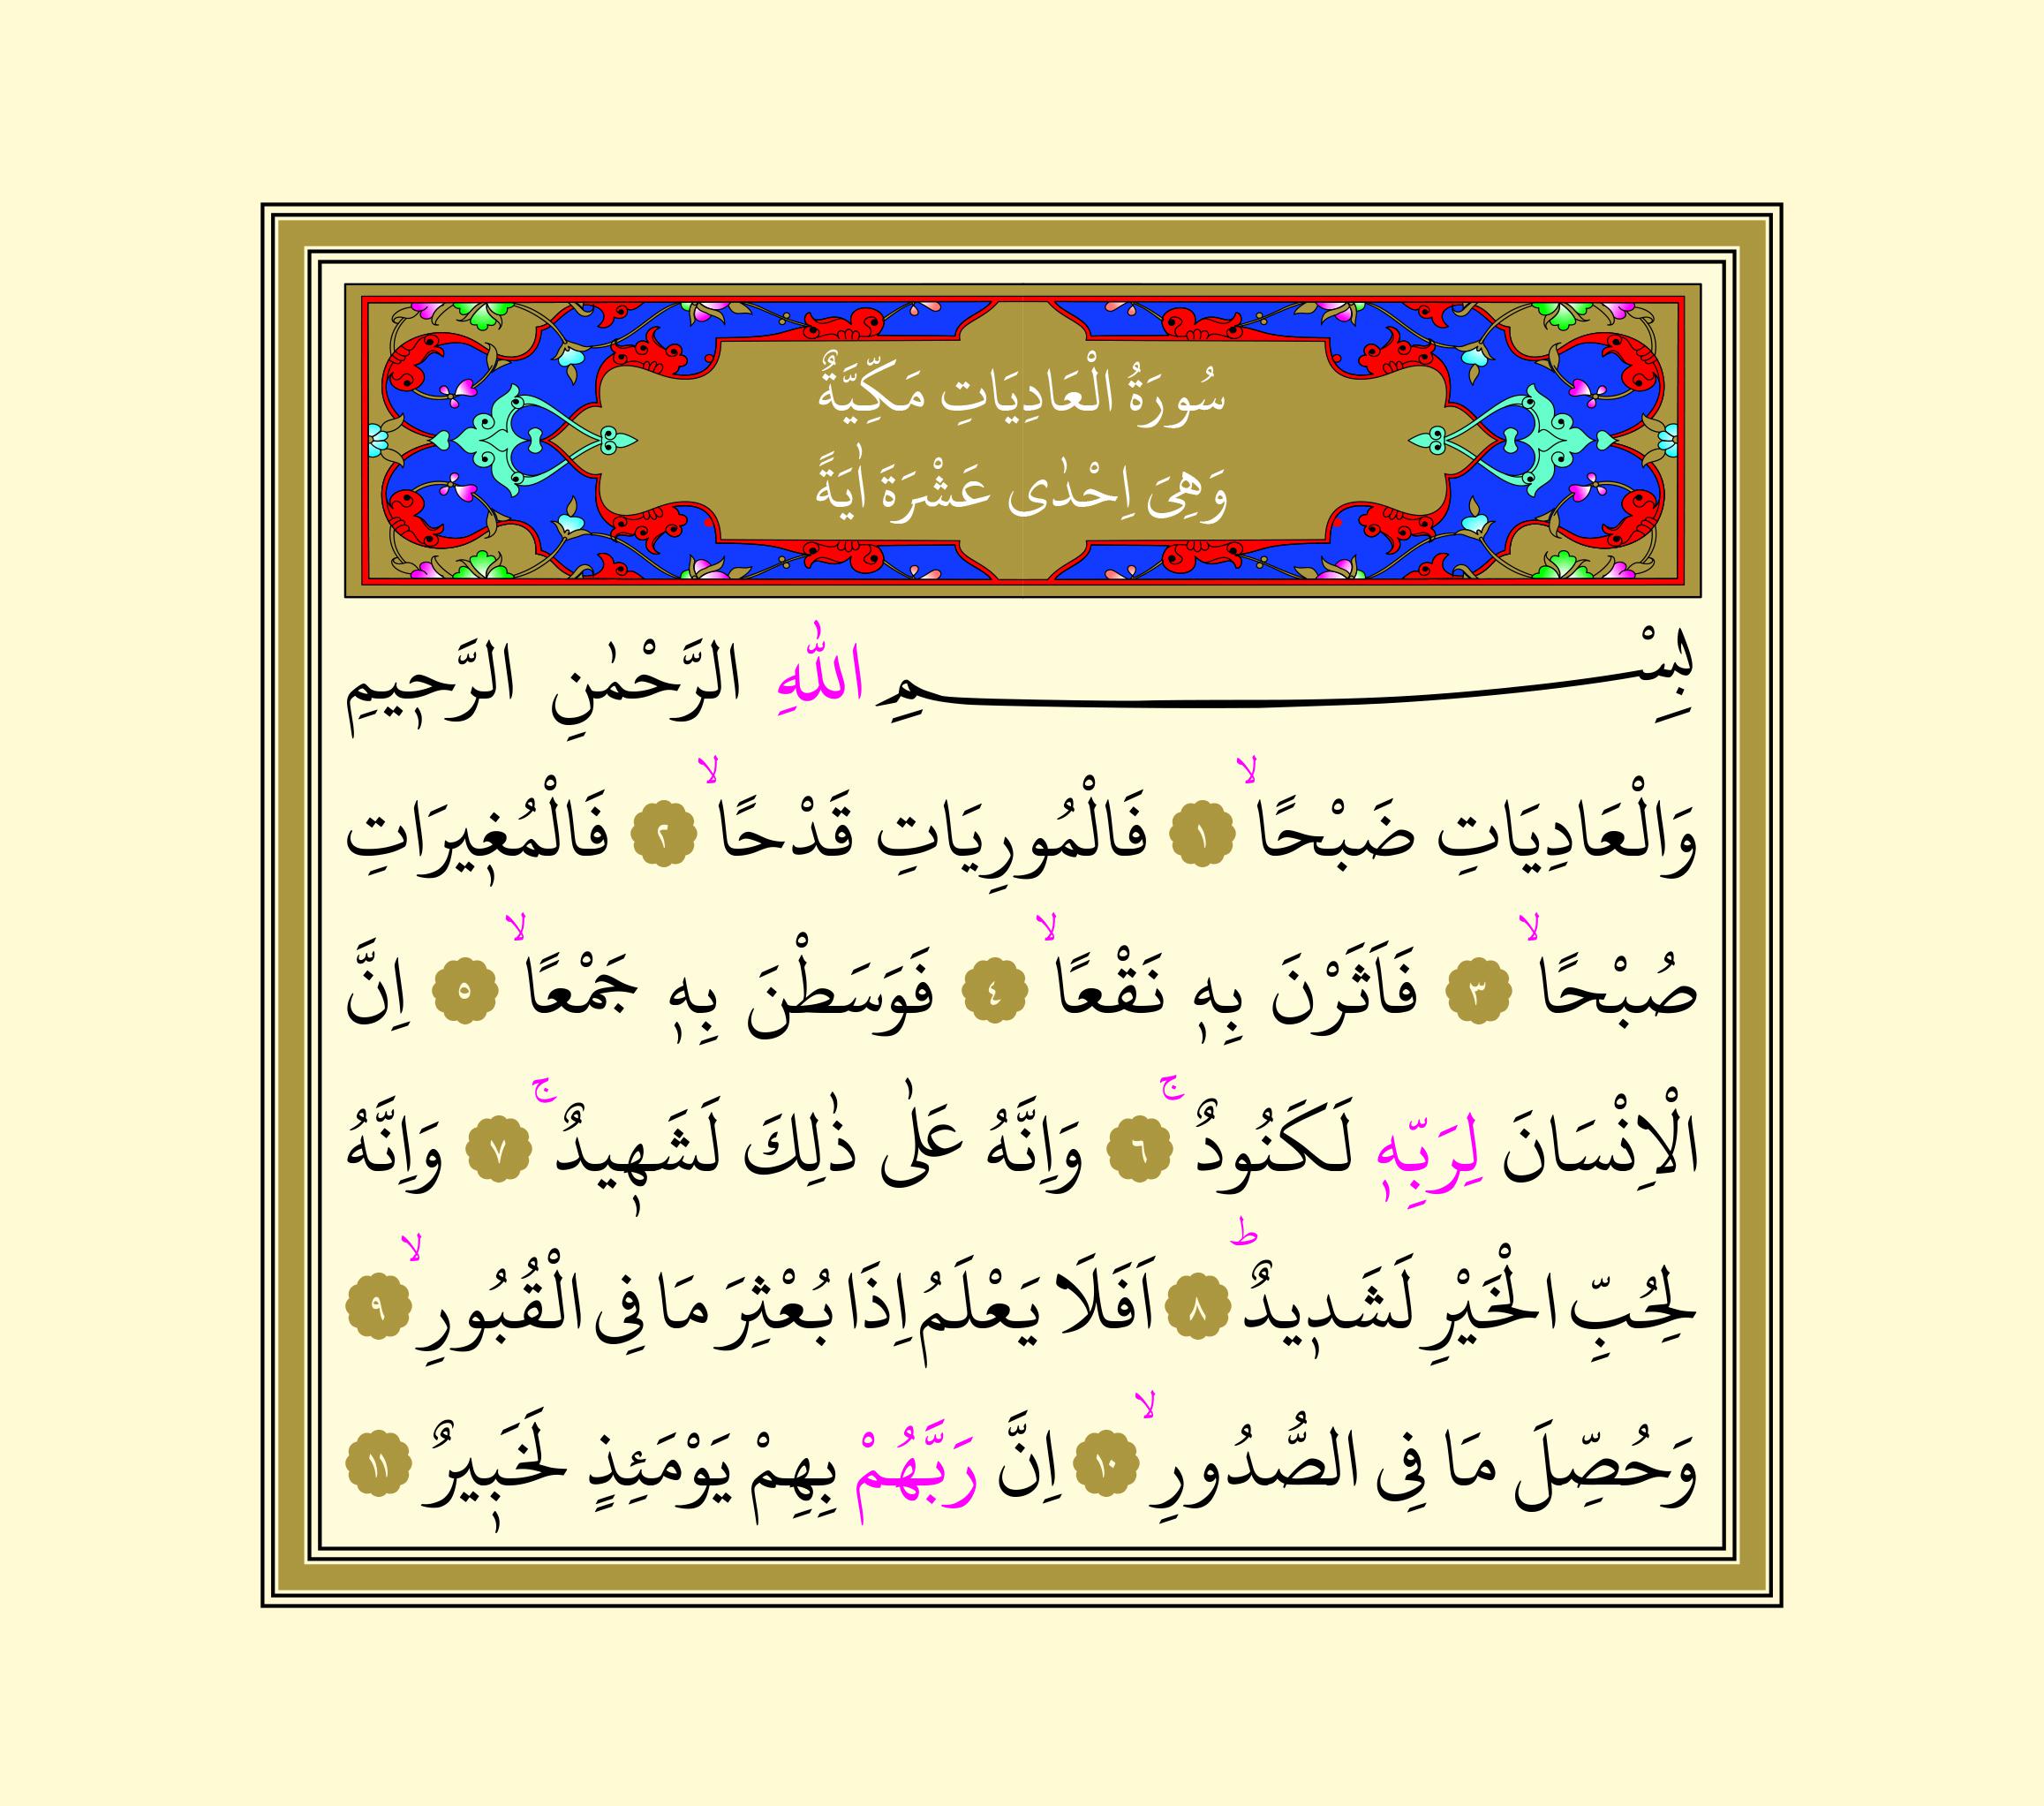 سُورَةُ الْعَادِيَاتِ مَكِّيَّةٌ
وَهِىَ اِحْدٰى عَشْرَةَ اٰيَةً
بِسْمِ اللّٰهِ الرَّحْمٰنِ الرَّحٖيمِ
وَالْعَادِيَاتِ ضَبْحًاۙ ١ فَالْمُورِيَاتِ قَدْحًاۙ ٢ فَالْمُغٖيرَاتِ
صُبْحًاۙ ٣ فَاَثَرْنَ بِهٖ نَقْعًاۙ ٤ فَوَسَطْنَ بِهٖ جَمْعًاۙ ٥ اِنَّ
الْاِنْسَانَ لِرَبِّهٖ لَكَنُودٌۚ ٦ وَاِنَّهُ عَلٰى ذٰلِكَ لَشَهٖيدٌۚ ٧ وَاِنَّهُ
لِحُبِّ الْخَيْرِ لَشَدٖيدٌؕ ٨ اَفَلَا يَعْلَمُ اِذَا بُعْثِرَ مَا فِى الْقُبُورِۙ ٩
وَحُصِّلَ مَا فِى الصُّدُورِۙ ١٠ اِنَّ رَبَّهُمْ بِهِمْ يَوْمَئِذٍ لَخَبٖيرٌ ١١